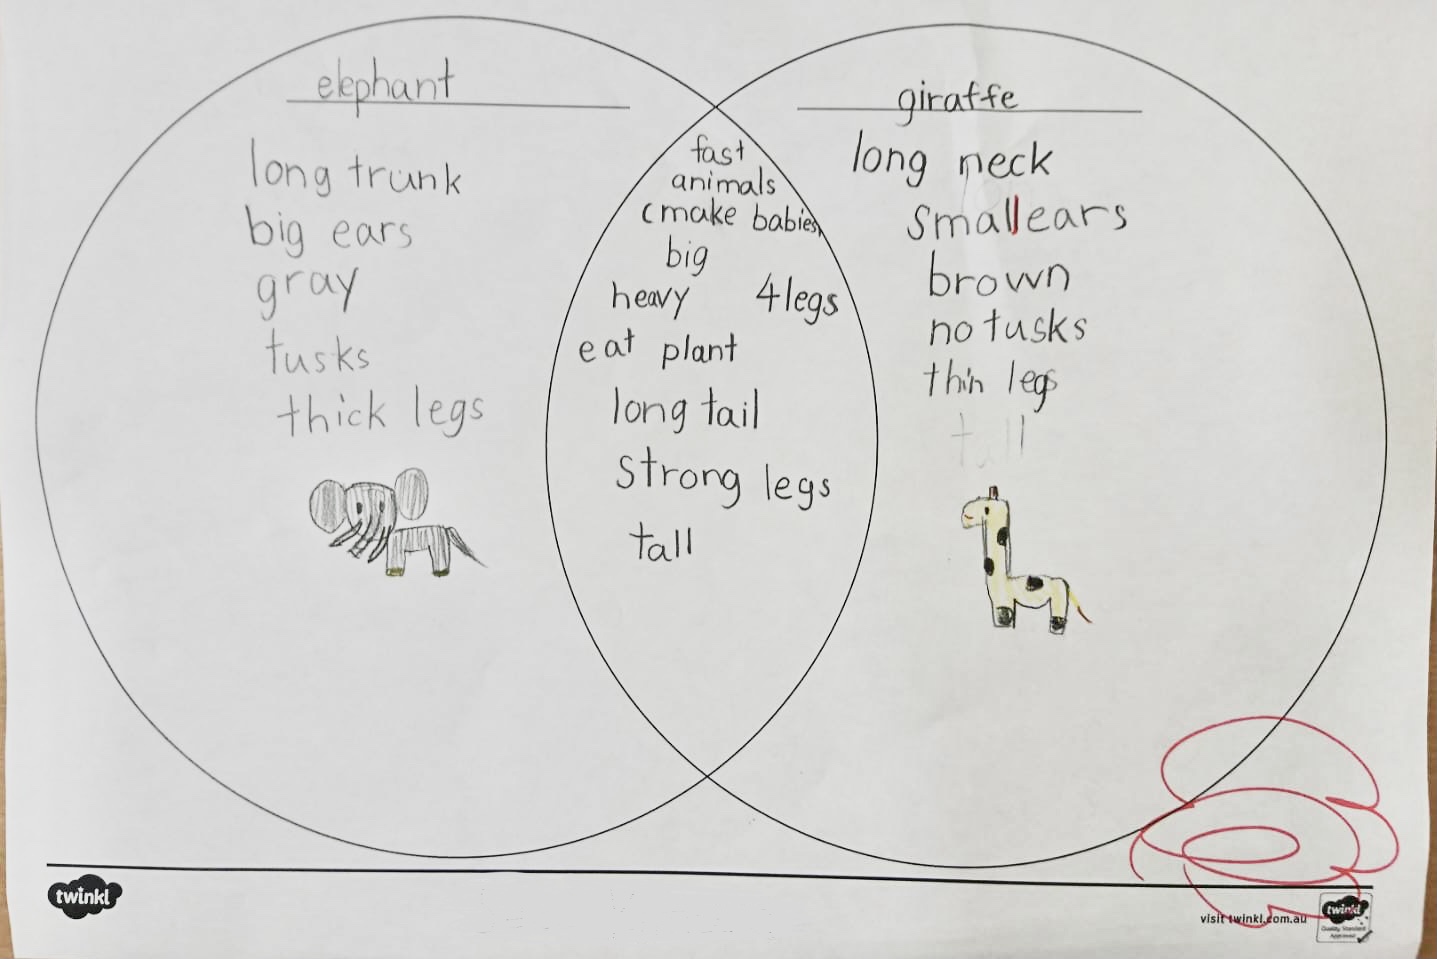 elephant
long trunk
big ears
gray
tusks
thick legs
fast
animals
(make babies,
big
heavy 4 legs
eat plant
long tail
strong legs
tall
giraffe
long neck
small ears
brown
no tusks
thin legs
tall
twinkl
visit twinkl.com.au
twinkl
Quality Standard
Approved